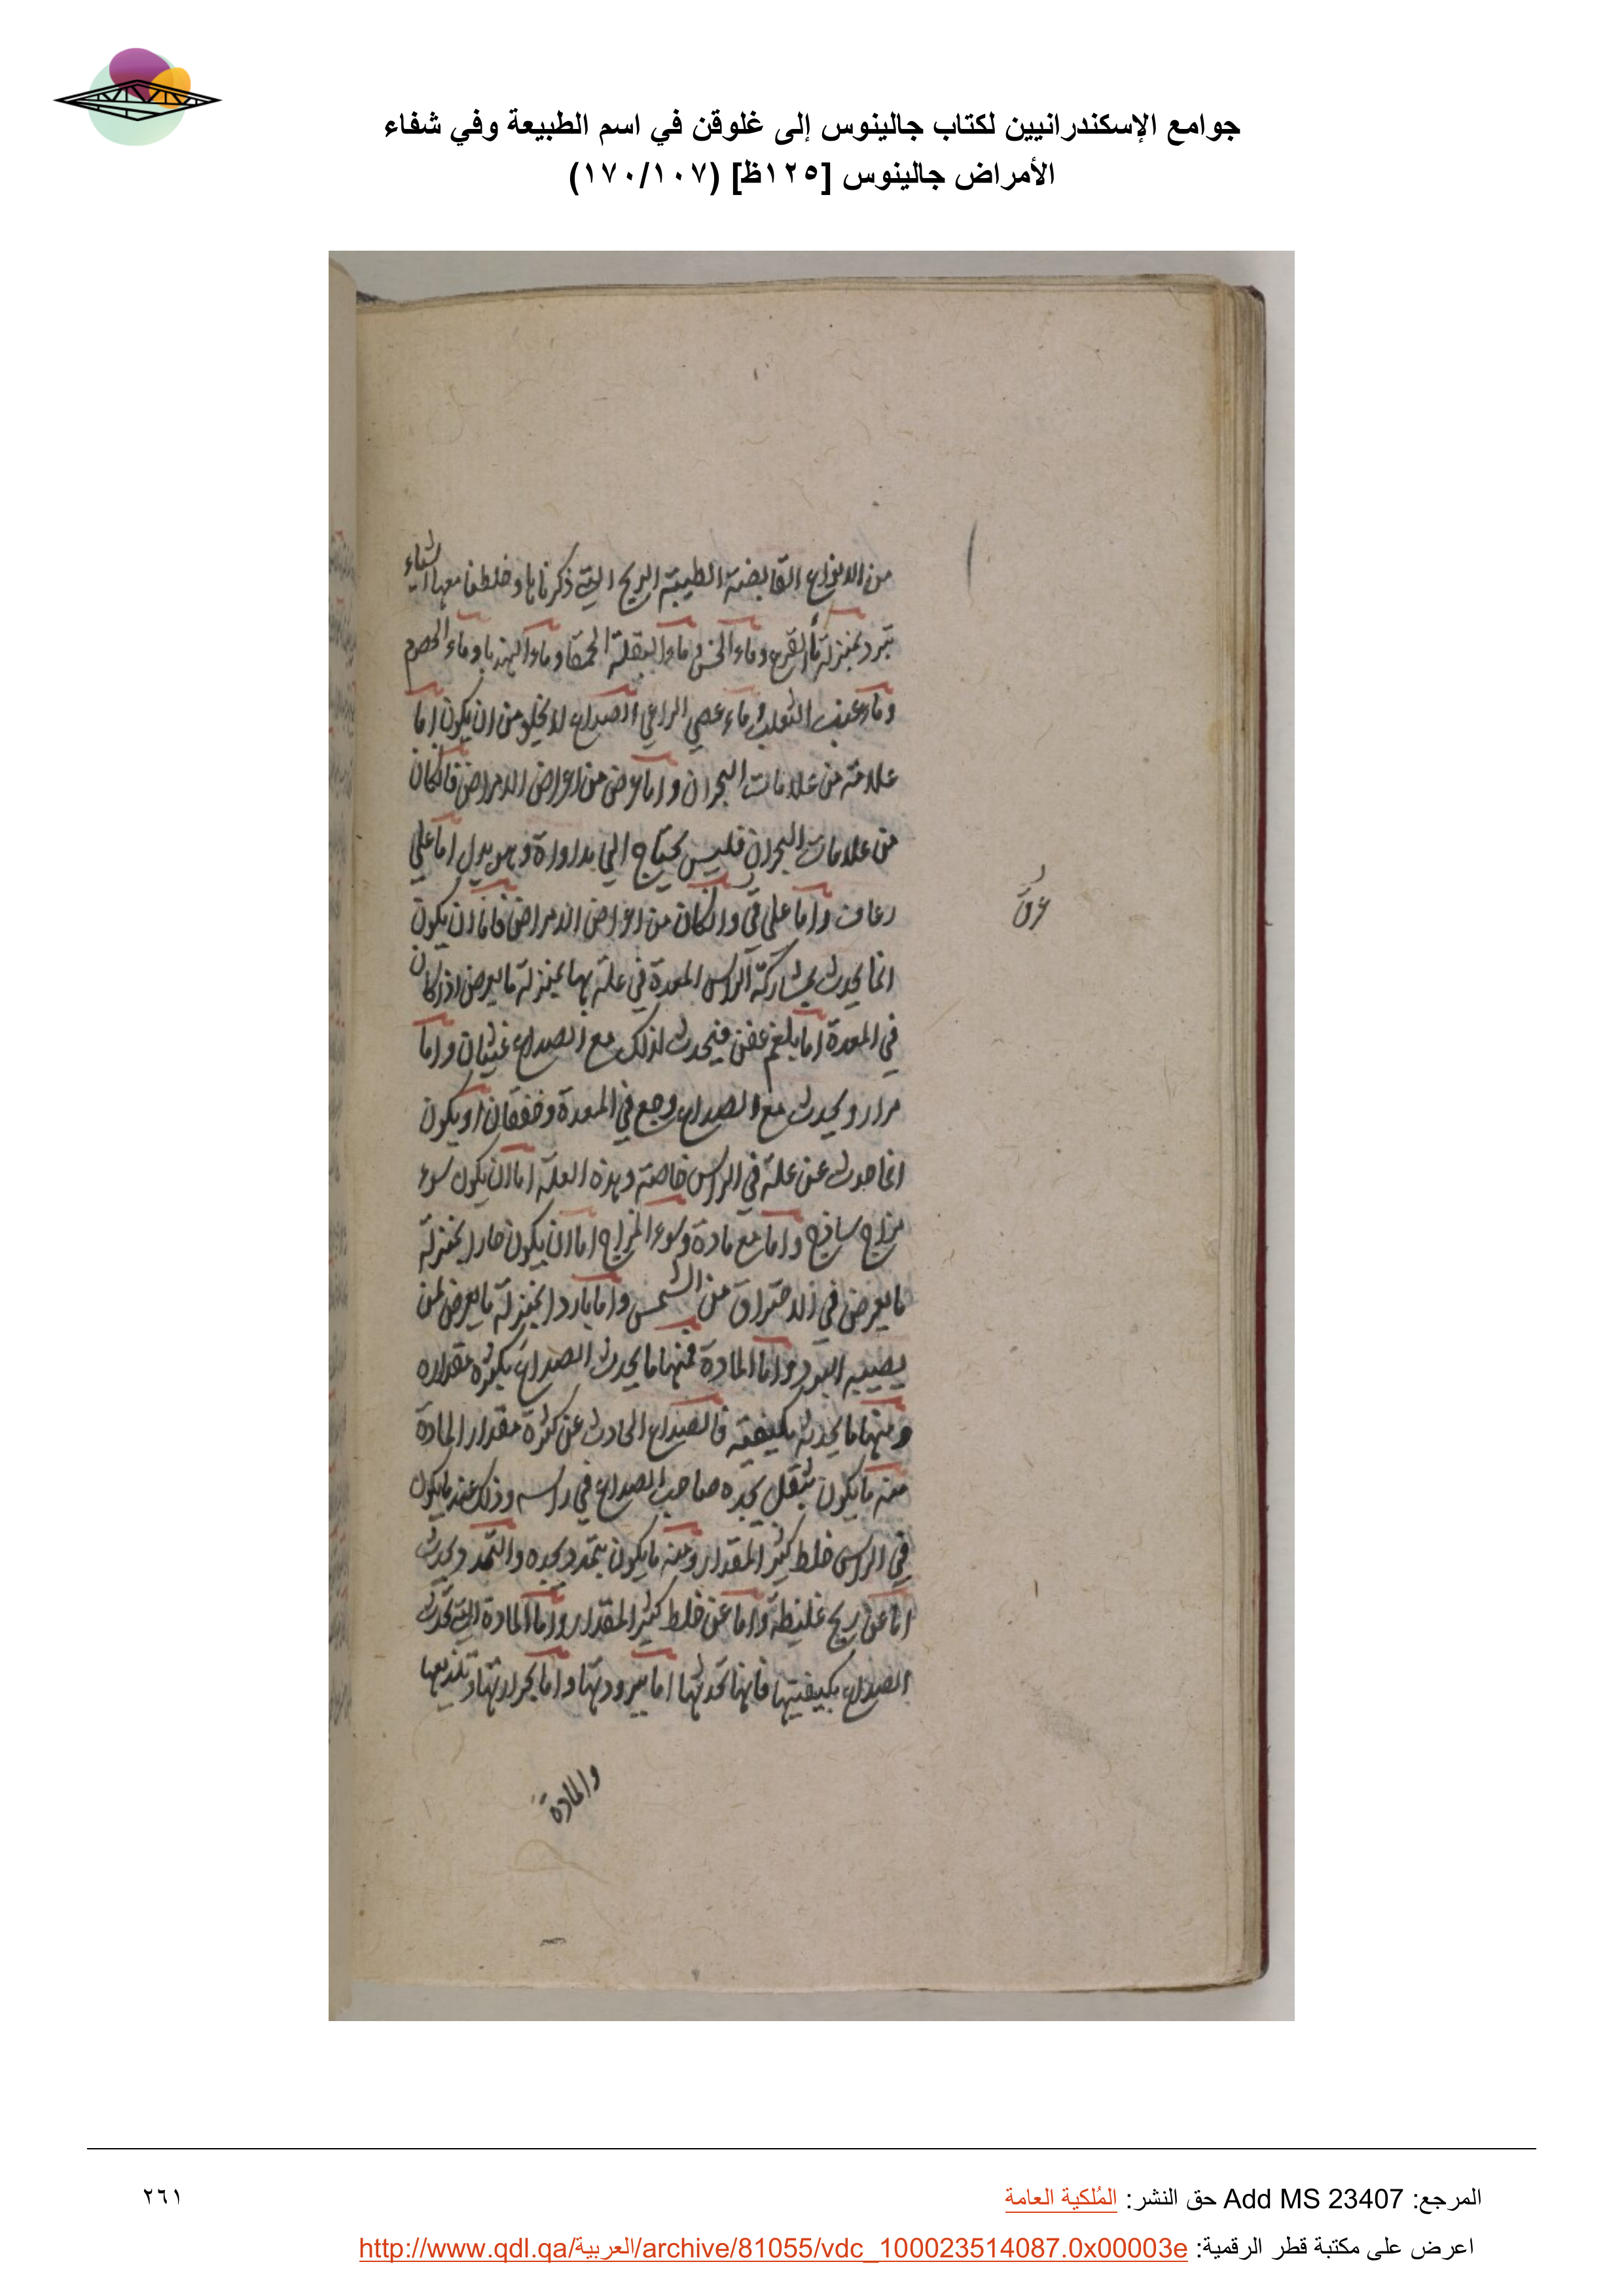 جوامع الإسكندرانيين لكتاب جالينوس إلى غلوقن في اسم الطبيعة وفي شفاء
الأمراض جالينوس [١٢٥ظ] (١٧٠/١٠٧)
من الانواع القابضة الطيبة الريح التي ذكرناها وخلطنا معها اشياء
تبرد بمنزلة ماء القرع وماء الخس وماء البقلة الحمقا وماء الهندبا وماء الحصرم
وماء عنب الثعلب وماء عصي الراعي الصداع لا يخلو من ان يكون اما
علامة من علامات البحران واما عرض من اعراض الامراض فان كان
من علامات البحران فليس يحتاج الي مداواة وهو يدل اما علي
رعاف واما علي قي وان كان من اعراض الامراض فاما ان يكون
انما يحدث بمشاركة الراس المعدة في علة بها بمنزلة ما يعرض اذا كان
في المعدة اما بلغم عفن فيحدث لذلك مع الصداع غثيان واما
مرار ويحدث مع الصداع وجع في المعدة وخفقان او يكون
انما حدث عن علة في الراس خاصة وهذه العلة اما ان يكون سوء
مزاج ساذج واما مع مادة وسوء المزاج اما ان يكون حارا بمنزلة
ما يعرض في الاحتراق من الشمس واما باردا بمنزلة ما يعرض لمن
يصيبه البرد واما المادة فمنها ما يحدث الصداع بكثرة مقداره
ومنها ما يحدثه بكيفيته فالصداع الحادث عن كثرة مقدار المادة
منه ما يكون بثقل يجده صاحب الصداع في راسه وذلك عند ما يكون
في الراس خلط كثير المقدار ومنه ما يكون بتمدد يجده والتمدد يحدث
اما عن ريح غليظة واما عن خلط كثير المقدار واما المادة التي تحدث
الصداع بكيفيتها فانها تحدثها اما ببرودتها واما بحرارتها وتلذيعها
والمادة
عرق
المرجع: Add MS 23407 حق النشر: المُلكية العامة
٢٦١
اعرض على مكتبة قطر الرقمية: http://www.qdl.qa/العربية/archive/81055/vdc_100023514087.0x00003e